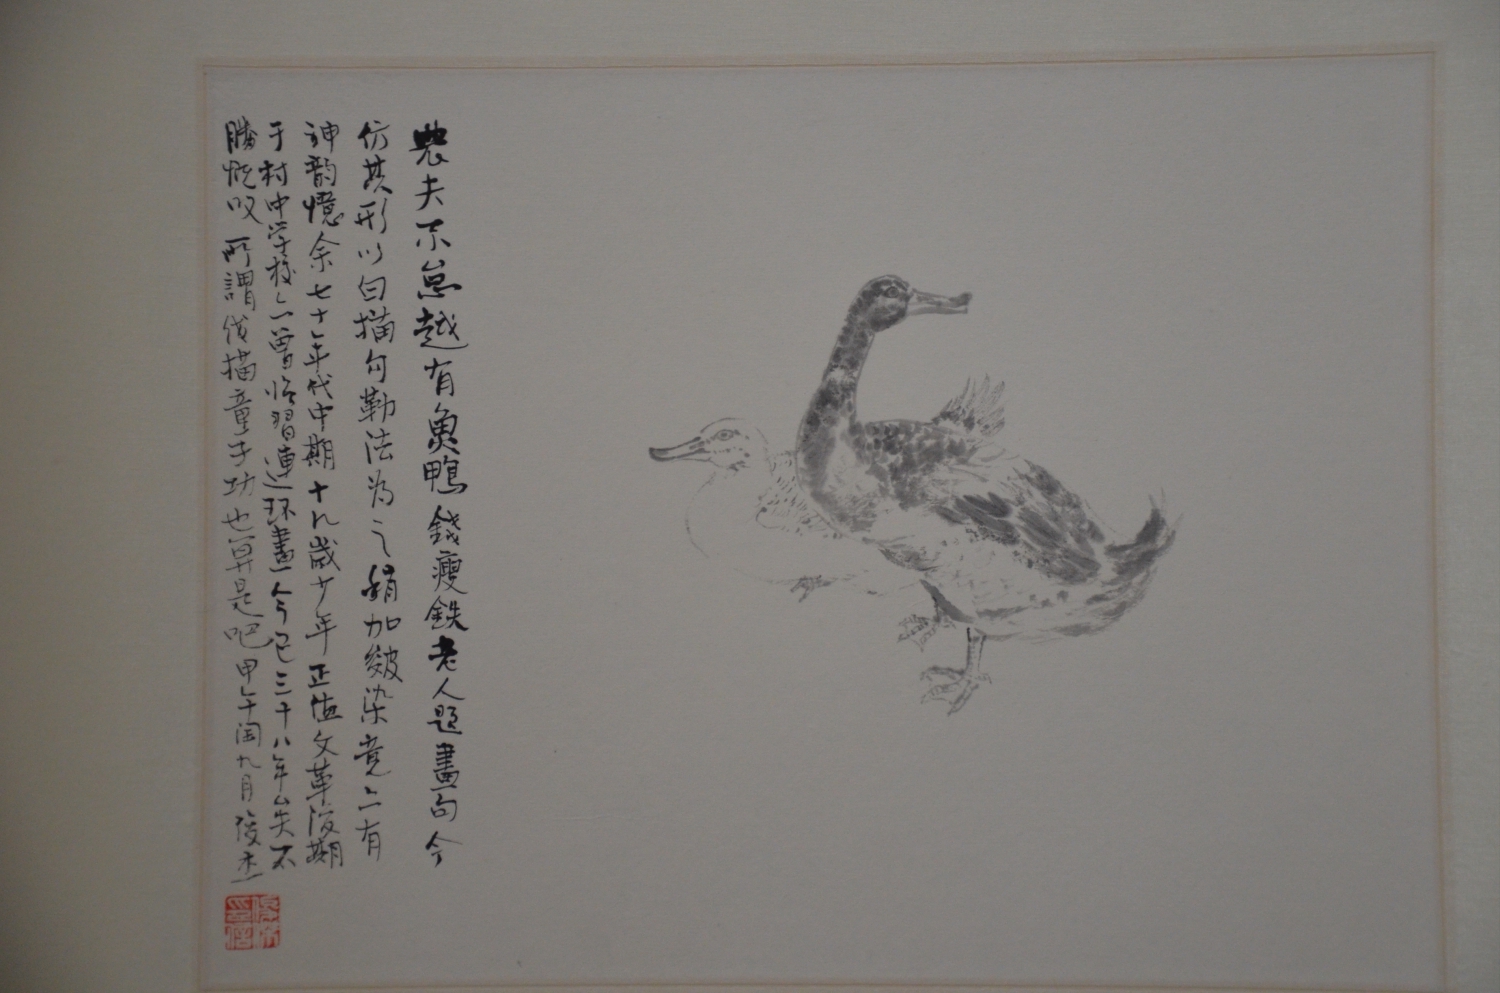 農夫不怠越有魚鴨錢瘦鉄老人題畫句今
仿其形以白描勾勒法为之稍加皴染竟亦有
神韵憶余七十年代中期十九歲少年正值文革後期
于村中学校亦曾临習連环畫今已三十八年矣不
勝慨叹所謂 描童子功也算是吧甲午闰九月俊杰